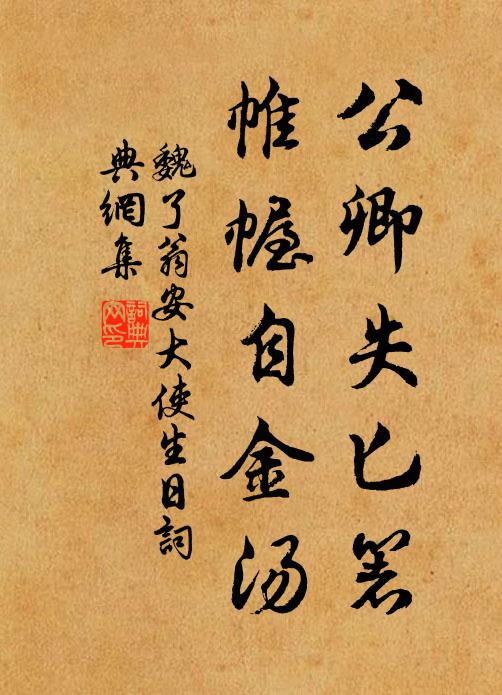 公卿失匕箸
帷幄自金汤
魏了翁安大使生日詞
典網集
詞典网印